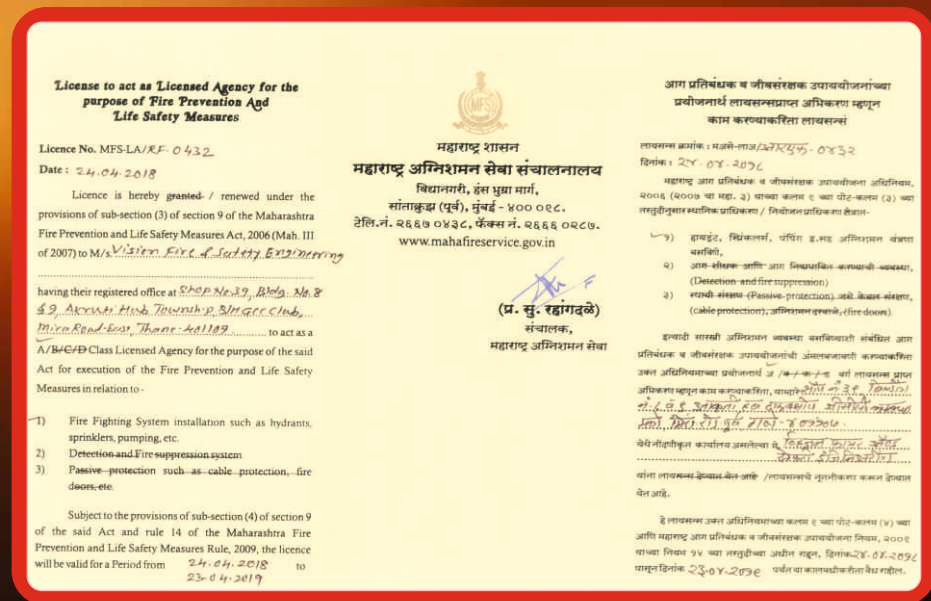 License to act as Licensed Agency for the
purpose of Fire Prevention And
Life Safety Measures
Licence No. MFS-LA/RF-0432
Date : 24.04.2018
Licence is hereby granted / renewed under the
provisions of sub-section (3) of section 9 of the Maharashtra
Fire Prevention and Life Safety Measures Act, 2006 (Mah. III
of 2007) to M/s. Vision Fire & Safety Engineering
having their registered office at Shop No.39, Bldg. No.8
& 9, Akruti Hub Township, B/H GCC Club,
Mira Road-East, Thane-401109 to act as a
A/B/C/D Class Licensed Agency for the purpose of the said
Act for execution of the Fire Prevention and Life Safety
Measures in relation to -
1) Fire Fighting System installation such as hydrants,
sprinklers, pumping, etc.
2) Detection and Fire suppression system
3) Passive protection such as cable protection, fire
doors, etc.
Subject to the provisions of sub-section (4) of section 9
of the said Act and rule 14 of the Maharashtra Fire
Prevention and Life Safety Measures Rule, 2009, the licence
will be valid for a Period from 24.04.2018 to
23.04.2019
MFS
महाराष्ट्र शासन
महाराष्ट्र अग्निशमन सेवा संचालनालय
विद्यानगरी, हंस भुग्रा मार्ग,
सांताक्रुझ (पूर्व), मुंबई - ४०० ०९८.
टेलि.नं. २६६७ ०४३८, फॅक्स नं. २६६६ ०२८७.
www.mahafireservice.gov.in
(प्र. सु. रहांगदळे)
संचालक,
महाराष्ट्र अग्निशमन सेवा
आग प्रतिबंधक व जीवसंरक्षक उपाययोजनांच्या
प्रयोजनार्थ लायसन्सप्राप्त अभिकरण म्हणून
काम करण्याकरिता लायसन्स
लायसन्स क्रमांक : मअसे-लाअ/आरएफ-०४३२
दिनांक : २४-०४-२०१८
महाराष्ट्र आग प्रतिबंधक व जीवसंरक्षक उपाययोजना अधिनियम,
२००६ (२००७ चा महा. ३) याच्या कलम ९ च्या पोट-कलम (३) च्या
तरतुदीनुसार स्थानिक प्राधिकरण / नियोजन प्राधिकरण क्षेत्रात-
१) हायड्रंट, स्प्रिंकलर्स, पंपिंग इ.सह अग्निशमन यंत्रणा
बसविणे,
२) आग शोधक आणि आग व्यवस्था,
(Detection and fire suppression)
३) स्थायी संरक्षण (Passive protection) जसे केबल संरक्षण,
(cable protection), अग्निशमन दरवाजे, (fire doors)
इत्यादी सारखी अग्निशमन व्यवस्था बसविण्याशी संबंधित आग
प्रतिबंधक व जीवसंरक्षक उपाययोजनांची अंमलबजावणी करण्याकरिता
उक्त अधिनियमाच्या प्रयोजनार्थ अ /ब / क / ड वर्ग लायसन्स प्राप्त
अभिकरण म्हणून काम करण्याकरिता, शॉप नं ३९
नं. ८ व ९ आकृती हब टाऊनशिप जीसीसी
क्लब, मिरा रोड पूर्व ठाणे-४०११०७.
येथे नोंदणीकृत कार्यालय असलेल्या मे. व्हिजन फायर अँड
सेफ्टी इंजिनिअरींग
यांना लायसन्स देण्यात येत आहे /लायसन्सचे नूतनीकरण करून देण्यात
येत आहे.
हे लायसन्स उक्त अधिनियमाच्या कलम ९ च्या पोट-कलम (४) च्या
आणि महाराष्ट्र आग प्रतिबंधक व जीवसंरक्षक उपाययोजना नियम, २००९
याच्या नियम १४ च्या तरतुदीच्या अधीन राहून, दिनांक २४-०४-२०१८
पासून दिनांक २३-०४-२०१९ पर्यंत या कालावधीकरीता वैध राहील.